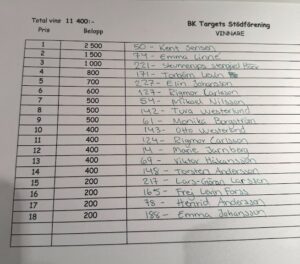 Total vins 11 400:-
BK Targets Stödförening
Pris Belopp VINNARE
1 2 500 50 - Kent Jensen
2 1 500 74 - Emma Linné
3 1 000 221 -
4 800 171 - Torbjörn Levin
5 700 227 - Elin Johansson
6 600 127 - Rigmor Carlsson
7 500 54 - Mikael Nilsson
8 500 142 - Tura Westerlund
9 500 61 - Monika Bergström
10 400 143 - Otto Westerlund
11 400 124 - Rigmor Carlsson
12 400 14 - Marie Jarnberg
13 400 69 - Viktor Håkansson
14 400 148 - Torsten Andersson
15 200 217 - Lars-Göran Larsson
16 200 165 - Frej Levin Forss
17 200 78 - Henrid Andersson
18 200 186 - Emma Johansson